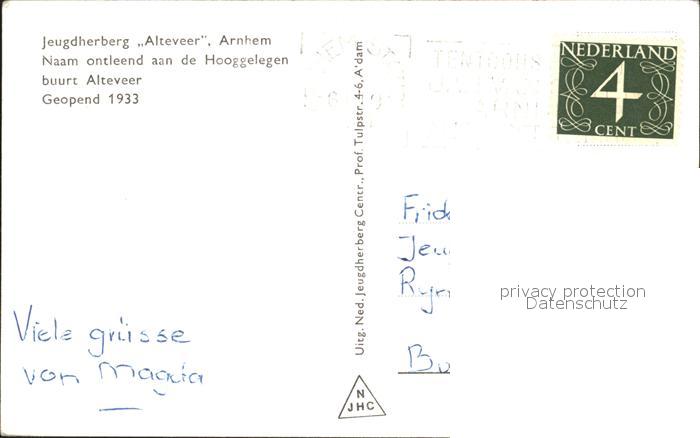 Jeugdherberg „Alteveer”, Arnhem
Naam ontleend aan de Hooggelegen
buurt Alteveer
Geopend 1933
Viele grüsse
von Magda
Uitg. Ned. Jeugdherberg Centr., Prof. Tulpstr. 4-6, A'dam
N
JHC
NEDERLAND
4
CENT
privacy protection
Datenschutz